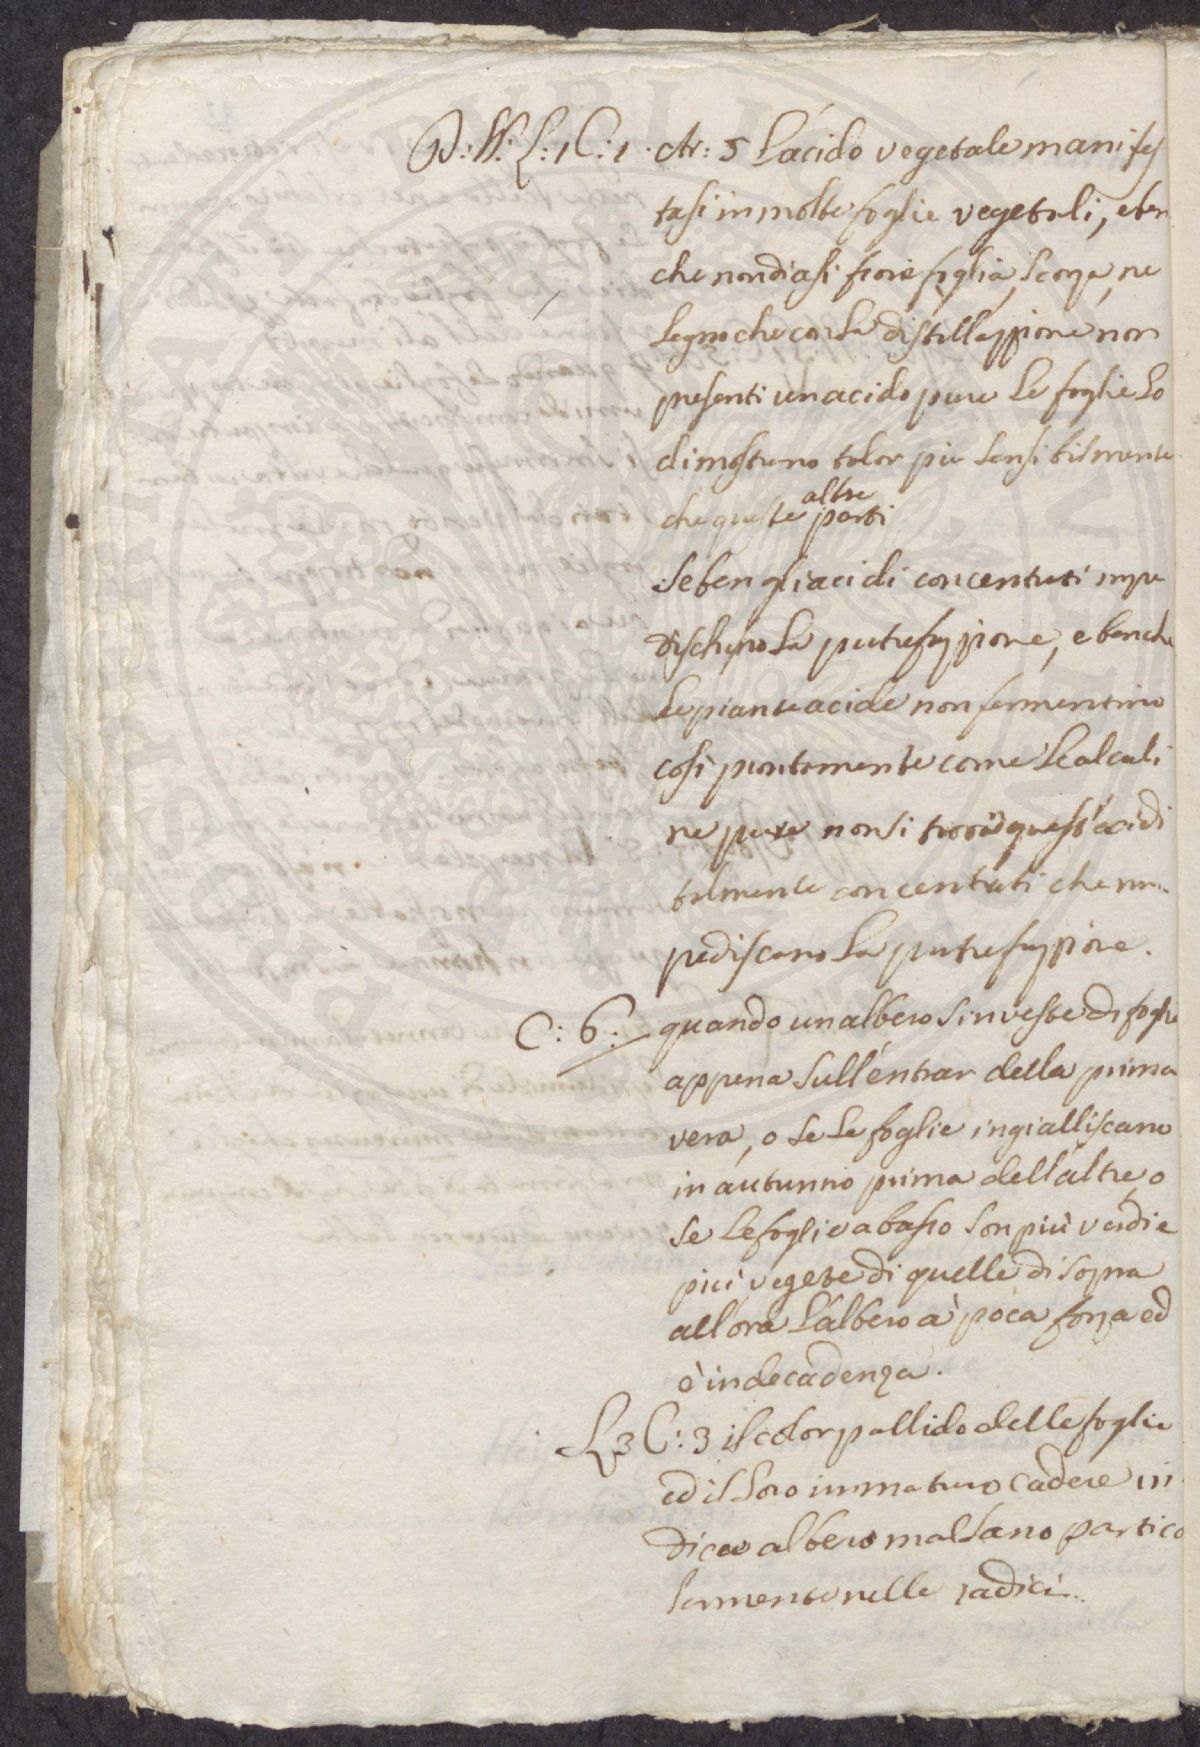 D: H: L: 1 C: 1 · Ar: 5 L'acido vegetale manifes
tasi in molte foglie vegetali, e ben
che non diasi fiore foglia, scorza, ne
legno che con la distillazzione non
presenti un acido pure le foglie lo
dimostrano talor più sensibilmente
che queste altre parti
Seben gli acidi concentrati impe
dischino la putrefazzione, e benche
le piante acide non fermentino
cosi prontamente come le alcali
ne pure non si trovò quest'acidi
talmente concentrati che im-
pediscano la putrefazzione.
C: 6: quando un albero s'investe di foglie
appena sull'entrar della prima
vera, o se le foglie ingialliscano
in autunno prima dell'altre, o
se le foglie a basso son più verdi e
più vegete di quelle di sopra
all'ora l'albero à poca forza ed
è in decadenza.
L 3 C: 3 il color pallido delle foglie
ed il loro immaturo cadere in
dica albero malsano partico
larmente nelle radici.